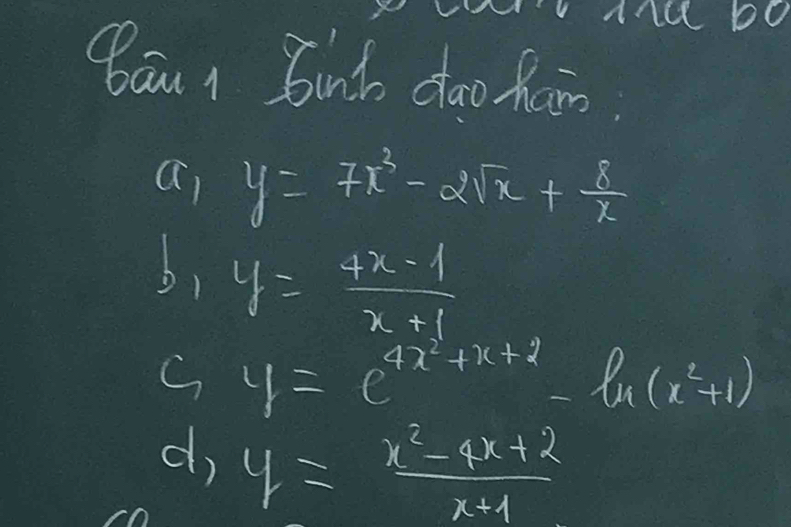 Câu 1 Tính đạo hàm:
a, y = 7x³ - 2√x + 8/x
b, y = (4x - 1)/(x + 1)
c, y = e^(4x² + x + 2) - ln(x² + 1)
d, y = (x² - 4x + 2)/(x + 1)